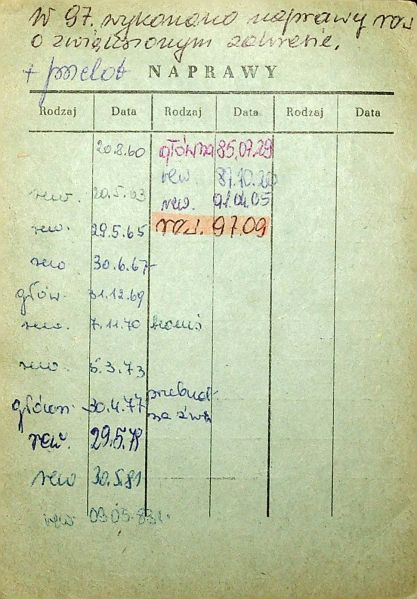 W 97. wykonano naprawy rew.
o zwiększonym zakresie.
NAPRAWY
Rodzaj Data Rodzaj Data Rodzaj Data
20.8.60 główna 85.07.29
rew. 20.5.63 rew. 87.10.20
rew. 91.04.05
rew. 29.5.65 rew. 97.09
rew 30.6.67
głów. 31.12.69
rew. 7.11.70
rew. 6.3.73
główn 30.4.77
rew. 29.5.78
rew 30.5.81
rew 09.05.83r.